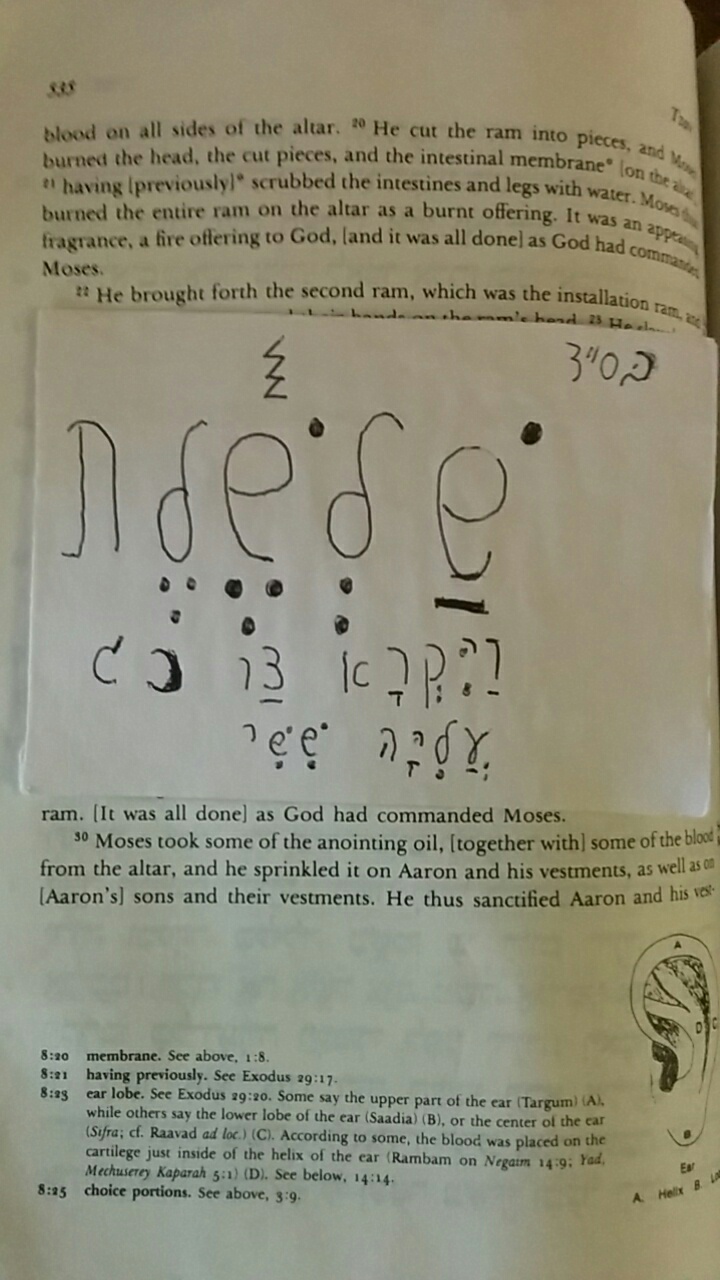 535
blood on all sides of the altar. 20 He cut the ram into pieces, and
burned the head, the cut pieces, and the intestinal membrane* [on the
21 having [previously]* scrubbed the intestines and legs with water. Moses
burned the entire ram on the altar as a burnt offering. It was an
fragrance, a fire offering to God, [and it was all done] as God had
Moses.
22 He brought forth the second ram, which was the installation ram,
hands on the ram's head. 23 He
בס״ד
שַׁלְשֶׁ֓לֶת
וַיִּקְרָא צַו
עֲלִיָּה שִׁשִּׁי
ram. [It was all done] as God had commanded Moses.
30 Moses took some of the anointing oil, [together with] some of the blood
from the altar, and he sprinkled it on Aaron and his vestments, as well as on
[Aaron's] sons and their vestments. He thus sanctified Aaron and his vest-
A
D
C
B
Ear
A. Helix B.
8:20 membrane. See above, 1:8.
8:21 having previously. See Exodus 29:17.
8:23 ear lobe. See Exodus 29:20. Some say the upper part of the ear (Targum) (A),
while others say the lower lobe of the ear (Saadia) (B), or the center of the ear
(Sifra; cf. Raavad ad loc.) (C). According to some, the blood was placed on the
cartilege just inside of the helix of the ear (Rambam on Negaim 14:9; Yad,
Mechuserey Kaparah 5:1) (D). See below, 14:14.
8:25 choice portions. See above, 3:9.